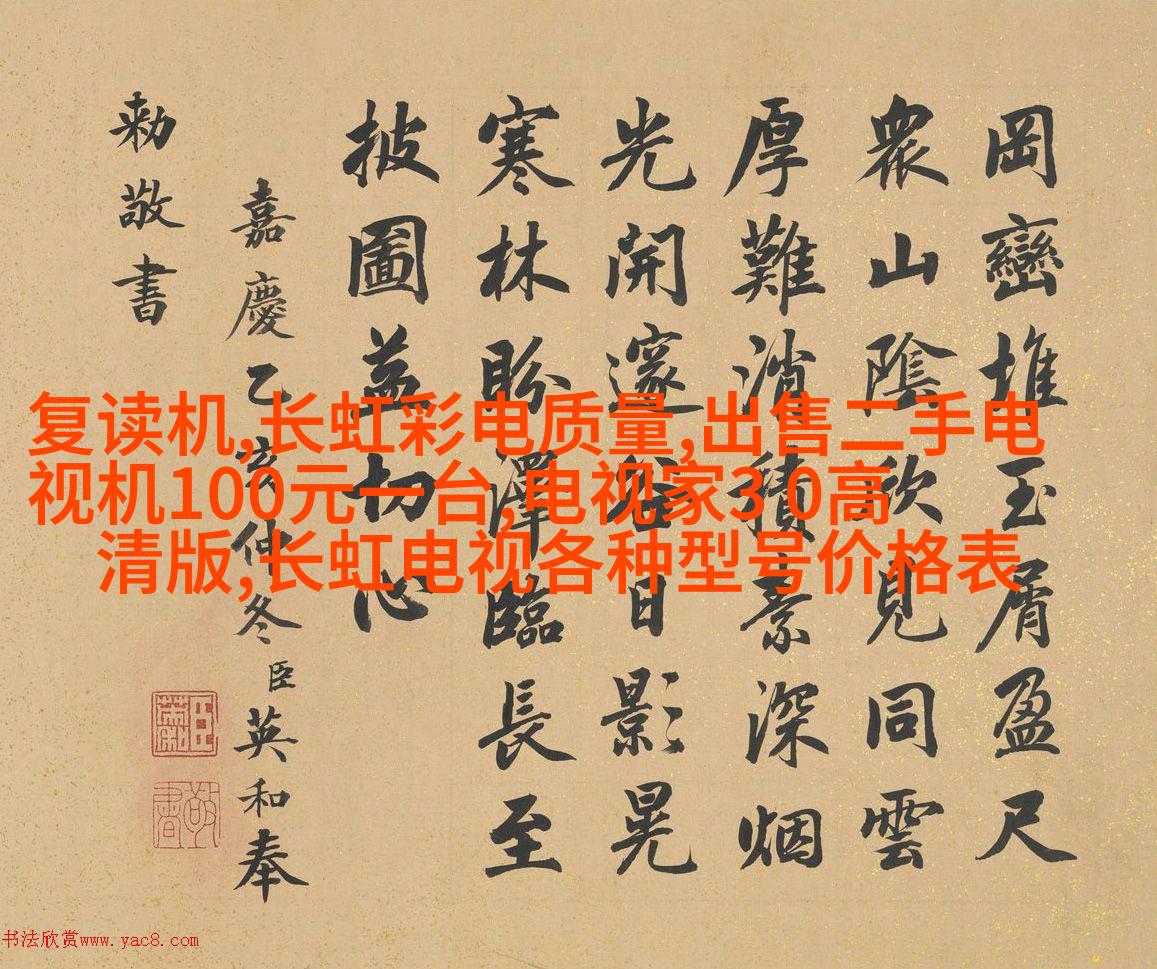 岡巒堆玉屑盈尺
衆山陰欣見同雲
厚難消積素深烟
光開邃谷日影晃
寒林盼澤臨長至
披圖益切心
嘉慶乙亥仲冬臣英和奉
勅敬書
敬書
复读机,长虹彩电质量,出售二手电
视机100元一台,电视家3 0高
清版,长虹电视各种型号价格表
书法欣赏www.yac8.com